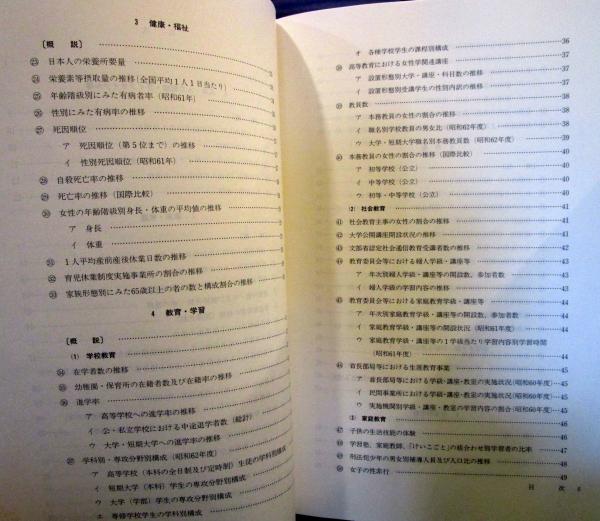 3 健康・福祉
〔概 説〕
㉓ 日本人の栄養所要量
㉔ 栄養素等摂取量の推移(全国平均1人1日当たり)
㉕ 年齢階級別にみた有病者率(昭和61年)
㉖ 性別にみた有病率の推移
㉗ 死因順位
ア 死因順位(第5位まで)の推移
イ 性別死因順位(昭和61年)
㉘ 自殺死亡率の推移
㉙ 死亡率の推移(国際比較)
㉚ 女性の年齢階級別身長・体重の平均値の推移
ア 身長
イ 体重
㉛ 1人平均産前産後休業日数の推移
㉜ 育児休業制度実施事業所の割合の推移
㉝ 家族形態別にみた65歳以上の者の数と構成割合の推移
4 教育・学習
〔概 説〕
(1) 学校教育
㉞ 在学者数の推移
㉟ 幼稚園・保育所の在籍者数及び在籍率の推移
㊱ 進学率
ア 高等学校への進学率の推移
イ 公・私立学校における中途退学者数(総計)
ウ 大学・短期大学への進学率の推移
㊲ 学科別・専攻分野別構成(昭和62年度)
ア 高等学校(本科の全日制及び定時制)生徒の学科別構成
イ 短期大学(本科)学生の専攻分野別構成
ウ 大学(学部)学生の専攻分野別構成
エ 専修学校学生の学科別構成
オ 各種学校学生の課程別構成 36
㊳ 高等教育における女性学関連講座
ア 設置形態別大学・講座・科目数の推移 37
イ 設置形態別受講学生の性別内訳の推移 37
㊴ 教員数
ア 本務教員の女性の割合の推移 38
イ 職名別学校教員の男女比(昭和62年度) 38
ウ 大学・短期大学職名別本務教員数(昭和62年度) 39
㊵ 本務教員の女性の割合(国際比較) 40
ア 初等学校(公立) 40
イ 中等学校(公立) 40
ウ 初等・中等学校(公立) 40
(2) 社会教育 41
㊶ 社会教育主事の女性の割合の推移 41
㊷ 大学公開講座開設状況の推移 41
㊸ 文部省認定社会通信教育受講者数の推移 42
㊹ 教育委員会等における婦人学級・講座等 43
ア 年次別婦人学級・講座等の開設数、参加者数 43
イ 婦人学級の学習内容の推移 43
㊺ 教育委員会等における家庭教育学級・講座等 43
ア 年次別家庭教育学級・講座等の開設数、参加者数 44
イ 家庭教育学級・講座等の開設状況(昭和61年) 44
ウ 家庭教育学級・講座等の1学級当たり学習内容別学習時間
(昭和61年) 44
㊻ 首長部局等における生涯教育事業 45
ア 首長部局等における学級・講座・教室の実施状況(昭和60年度) 45
イ 民間事業所における学級・講座・教室の実施状況(昭和60年度) 45
ウ 実施機関別学級・講座・教室の学習内容の割合(昭和60年度) 45
(3) 家庭教育 46
㊼ 子供の生活技能の体験 46
㊽ 学習塾、家庭教師、「けいこごと」の組合わせ別学習者の比率 47
㊾ 刑法犯少年の男女別補導人員及び人口比の推移 48
㊿ 女子の性非行 49
目 次